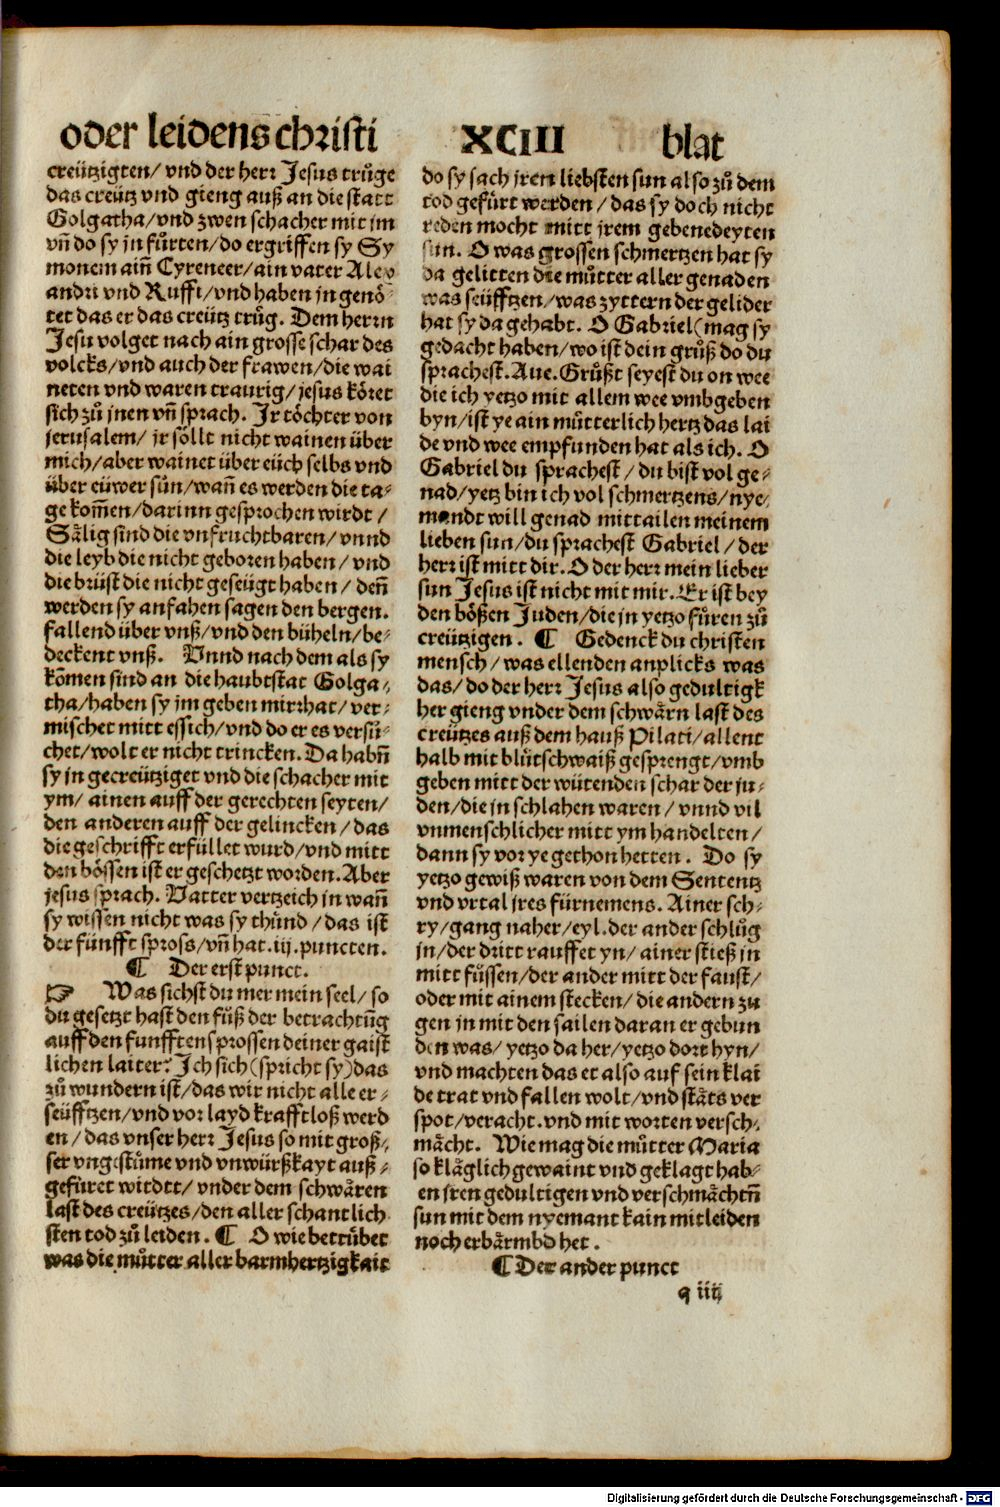 oder leidens christi XCIII blat
creützigten/ vnd der herr Jesus trůge
das creütz vnd gieng auß an die statt
Golgatha/vnd zwen schacher mit jm
vn̄ do sy jn fůrten/do ergriffen sy Sy
monem ain̄ Cyreneer/ain vater Alex
andri vnd Ruffi/vnd haben jn genö⸗
tet das er das creütz trůg. Dem herrn
Jesu volget nach ain grosse schar des
volcks/vnd auch der frawen/die wai
neten vnd waren traurig/jesus köret
sich zů jnen vn̄ sprach. Ir töchter von
jerusalem/ jr söllt nicht wainen über
mich/aber wainet über eüch selbs vnd
über eüwer sün/wan̄ es werden die ta⸗
ge kom̄en/darinn gesprochen wirdt /
Sälig sind die vnfruchtbaren/vnnd
die leyb die nicht geboren haben/ vnd
die brüst die nicht geseügt haben/ den̄
werden sy anfahen sagen den bergen.
fallend über vnß/vnd den büheln/be⸗
deckent vnß. Vnnd nach dem als sy
kōmen sind an die haubtstat Golga⸗
tha/haben sy jm geben mirrhat/ver⸗
mischet mitt essich/vnd do er es versů⸗
chet/wolt er nicht trincken. Da habn̄
sy jn gecreütziget vnd die schacher mit
ym/ ainen auff der gerechten seyten/
den anderen auff der gelincken/das
die geschrifft erfüllet wurd/vnd mitt
den bössen ist er geschetzt worden. Aber
jesus sprach. Vatter vertzeich jn wan̄
sy wissen nicht was sy thůnd/das ist
der fünfft spross/vn̄ hat.iij.puncten.
¶ Der erst punct.
☞ Was sichst du mer mein seel/ so
du gesetzt hast den fůß der betrachtūg
auff den funfften sprossen deiner gaist
lichen laiter? Ich sich(spricht sy)das
zů wundern ist/das wir nicht alle er⸗
seüfftzen/vnd vor layd krafftloß werd
en/das vnser herr Jesus so mit groß⸗
ser vngestůme vnd vnwürßkayt auß⸗
gefüret wirdtt/ vnder dem schwären
last des creützes/den aller schantlich
sten tod zů leiden. ¶ O wie betrůbet
was die můtter aller barmhertzigkait
do sy sach jren liebsten sun also zů dem
tod gefürt werden/das sy doch nicht
reden mocht mitt jrem gebenedeyten
sun. O was grossen schmertzen hat sy
da gelitten die můtter aller genaden
was seüfftzen/was zyttern der gelider
hat sy da gehabt. O Gabriel(mag sy
gedacht haben/wo ist dein grůß do du
sprachest. Aue. Grůßt seyest du on wee
die ich yetzo mit allem wee vmbgeben
byn/ist ye ain můtterlich hertz das lai
de vnd wee empfunden hat als ich. O
Gabriel du sprachest/du bist vol ge⸗
nad/yetz bin ich vol schmertzens/nye⸗
mandt will genad mittailen meinem
lieben sun/du sprachest Gabriel/der
herr ist mitt dir. O der herr mein lieber
sun Jesus ist nicht mit mir. Er ist bey
den bößen Juden/die jn yetzo füren zů
creützigen. ¶ Gedenck du christen
mensch/was ellenden anplicks was
das/do der herr Jesus also gedultigk
her gieng vnder dem schwärn last des
creützes auß dem hauß Pilati/allent
halb mit blůtschwaiß gesprengt/vmb
geben mitt der wütenden schar der ju⸗
den/die jn schlahen waren/ vnnd vil
vnmenschlicher mitt ym handelten/
dann sy vor ye gethon hetten. Do sy
yetzo gewiß waren von dem Sententz
vnd vrtal jres fürnemens. Ainer sch⸗
ry/gang naher/eyl.der ander schlůg
jn/der dritt rauffet yn/ainer stieß jn
mitt füssen/der ander mitt der faust/
oder mit ainem stecken/die andern zu
gen jn mit den sailen daran er gebun
den was/ yetzo da her/yetzo dort hyn/
vnd machten das er also auf sein klai
de trat vnd fallen wolt/vnd stäts ver
spot/veracht.vnd mit worten versch⸗
mächt. Wie mag die můtter Maria
so kläglich gewaint vnd geklagt hab⸗
en jren gedultigen vnd verschmächtn̄
sun mit dem nyemant kain mitleiden
noch erbärmbd het.
¶ Der ander punct
q iiij
Digitalisierung gefördert durch die Deutsche Forschungsgemeinschaft - DFG